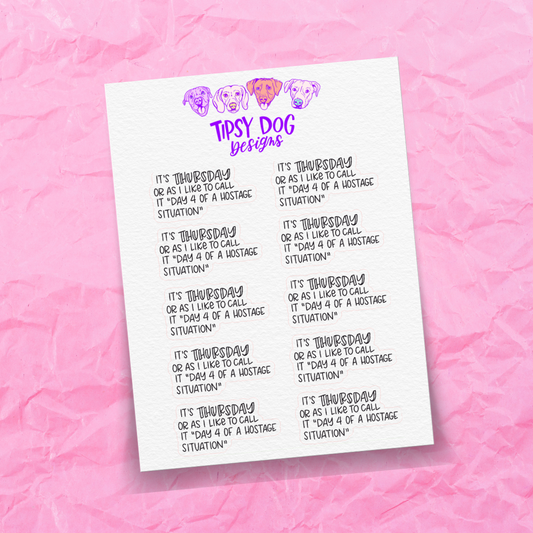 TIPSY DOG
DESIGNS
IT'S THURSDAY
OR AS I LIKE TO CALL
IT "DAY 4 OF A HOSTAGE
SITUATION"
IT'S THURSDAY
OR AS I LIKE TO CALL
IT "DAY 4 OF A HOSTAGE
SITUATION"
IT'S THURSDAY
OR AS I LIKE TO CALL
IT "DAY 4 OF A HOSTAGE
SITUATION"
IT'S THURSDAY
OR AS I LIKE TO CALL
IT "DAY 4 OF A HOSTAGE
SITUATION"
IT'S THURSDAY
OR AS I LIKE TO CALL
IT "DAY 4 OF A HOSTAGE
SITUATION"
IT'S THURSDAY
OR AS I LIKE TO CALL
IT "DAY 4 OF A HOSTAGE
SITUATION"
IT'S THURSDAY
OR AS I LIKE TO CALL
IT "DAY 4 OF A HOSTAGE
SITUATION"
IT'S THURSDAY
OR AS I LIKE TO CALL
IT "DAY 4 OF A HOSTAGE
SITUATION"
IT'S THURSDAY
OR AS I LIKE TO CALL
IT "DAY 4 OF A HOSTAGE
SITUATION"
IT'S THURSDAY
OR AS I LIKE TO CALL
IT "DAY 4 OF A HOSTAGE
SITUATION"